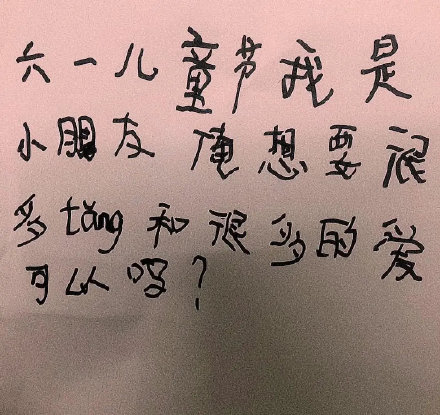 六一儿童节我是
小朋友 俺想要很
多tāng和很多的爱
可以吗?